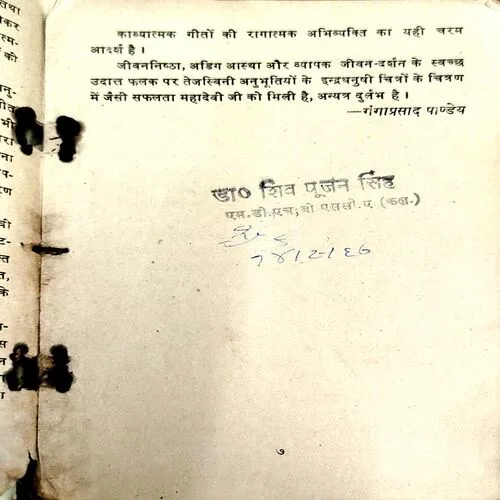 काव्यात्मक गीतों की रागात्मक अभिव्यक्ति का यही चरम
आदर्श है ।
जीवननिष्ठा, अडिग आस्था और व्यापक जीवन-दर्शन के स्वच्छ
उदात्त फलक पर तेजस्विनी अनुभूतियों के इन्द्रधनुषी चित्रों के चित्रण
में जैसी सफलता महादेवी जी को मिली है, अन्यत्र दुर्लभ है ।
—गंगाप्रसाद पाण्डेय
डा० शिव पूजन सिंह
एम.डी.एच,बी एससी.ए (कल.)
७